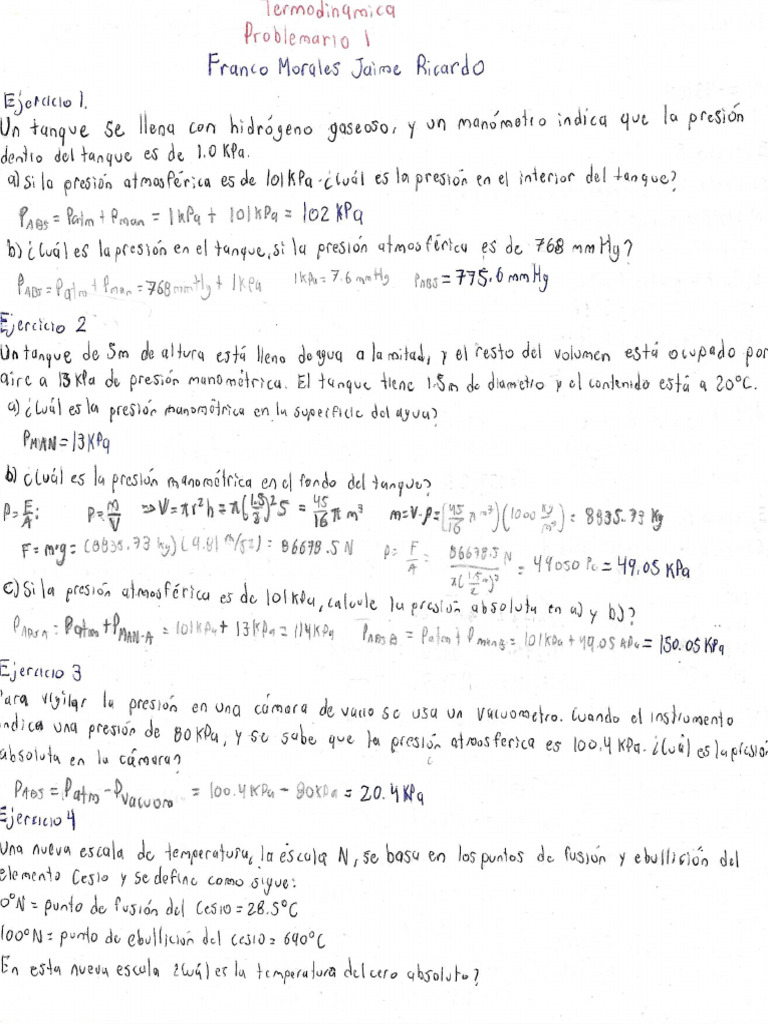 Termodinámica
Problemario 1
Franco Morales Jaime Ricardo
Ejercicio 1.
Un tanque se llena con hidrógeno gaseoso, y un manómetro indica que la presión
dentro del tanque es de 1.0 KPa.
a) Si la presión atmosférica es de 101 KPa. ¿Cuál es la presión en el interior del tanque?
P_ABS = Patm + Pman = 1 KPa + 101 KPa = 102 KPa
b) ¿Cuál es la presión en el tanque, si la presión atmosférica es de 768 mm Hg?
P_ABS = Patm + Pman = 768 mmHg + 1 KPa   1 KPa = 7.6 mm Hg   P_ABS = 775.6 mm Hg
Ejercicio 2
Un tanque de 5m de altura está lleno de agua a la mitad, y el resto del volumen está ocupado por
aire a 13 KPa de presión manométrica. El tanque tiene 1.5m de diametro y el contenido está a 20°C.
a) ¿Cuál es la presión manométrica en la superficie del agua?
P_MAN = 13 KPa
b) ¿Cuál es la presión manométrica en el fondo del tanque?
P = F/A ; ρ = m/V ⇒ V = πr²h = π(1.5/2)² 5 = 45/16 π m³   m = V·ρ = (45/16 π m³)(1000 Kg/m³) = 8835.73 Kg
F = m·g = (8835.73 Kg)(9.81 m/s²) = 86678.5 N   P = F/A = 86678.5 N / π(1.5/2 m)² = 49050 Pa = 49.05 KPa
c) Si la presión atmosférica es de 101 KPa, calcule la presión absoluta en a) y b)?
P_ABS A = Patm + P_MAN-A = 101 KPa + 13 KPa = 114 KPa   P_ABS B = Patm + Pman B = 101 KPa + 49.05 KPa = 150.05 KPa
Ejercicio 3
Para vigilar la presión en una cámara de vacio se usa un vacuometro. Cuando el instrumento
indica una presión de 80 KPa, y se sabe que la presión atmosferica es 100.4 KPa. ¿Cuál es la presión
absoluta en la cámara?
P_ABS = Patm - Pvacuom = 100.4 KPa - 80 KPa = 20.4 KPa
Ejercicio 4
Una nueva escala de temperatura, la escala N, se basa en los puntos de fusión y ebullición del
elemento Cesio y se define como sigue:
0°N = punto de fusión del Cesio = 28.5°C
100°N = punto de ebullición del cesio = 690°C
En esta nueva escala ¿Cuál es la temperatura del cero absoluto?